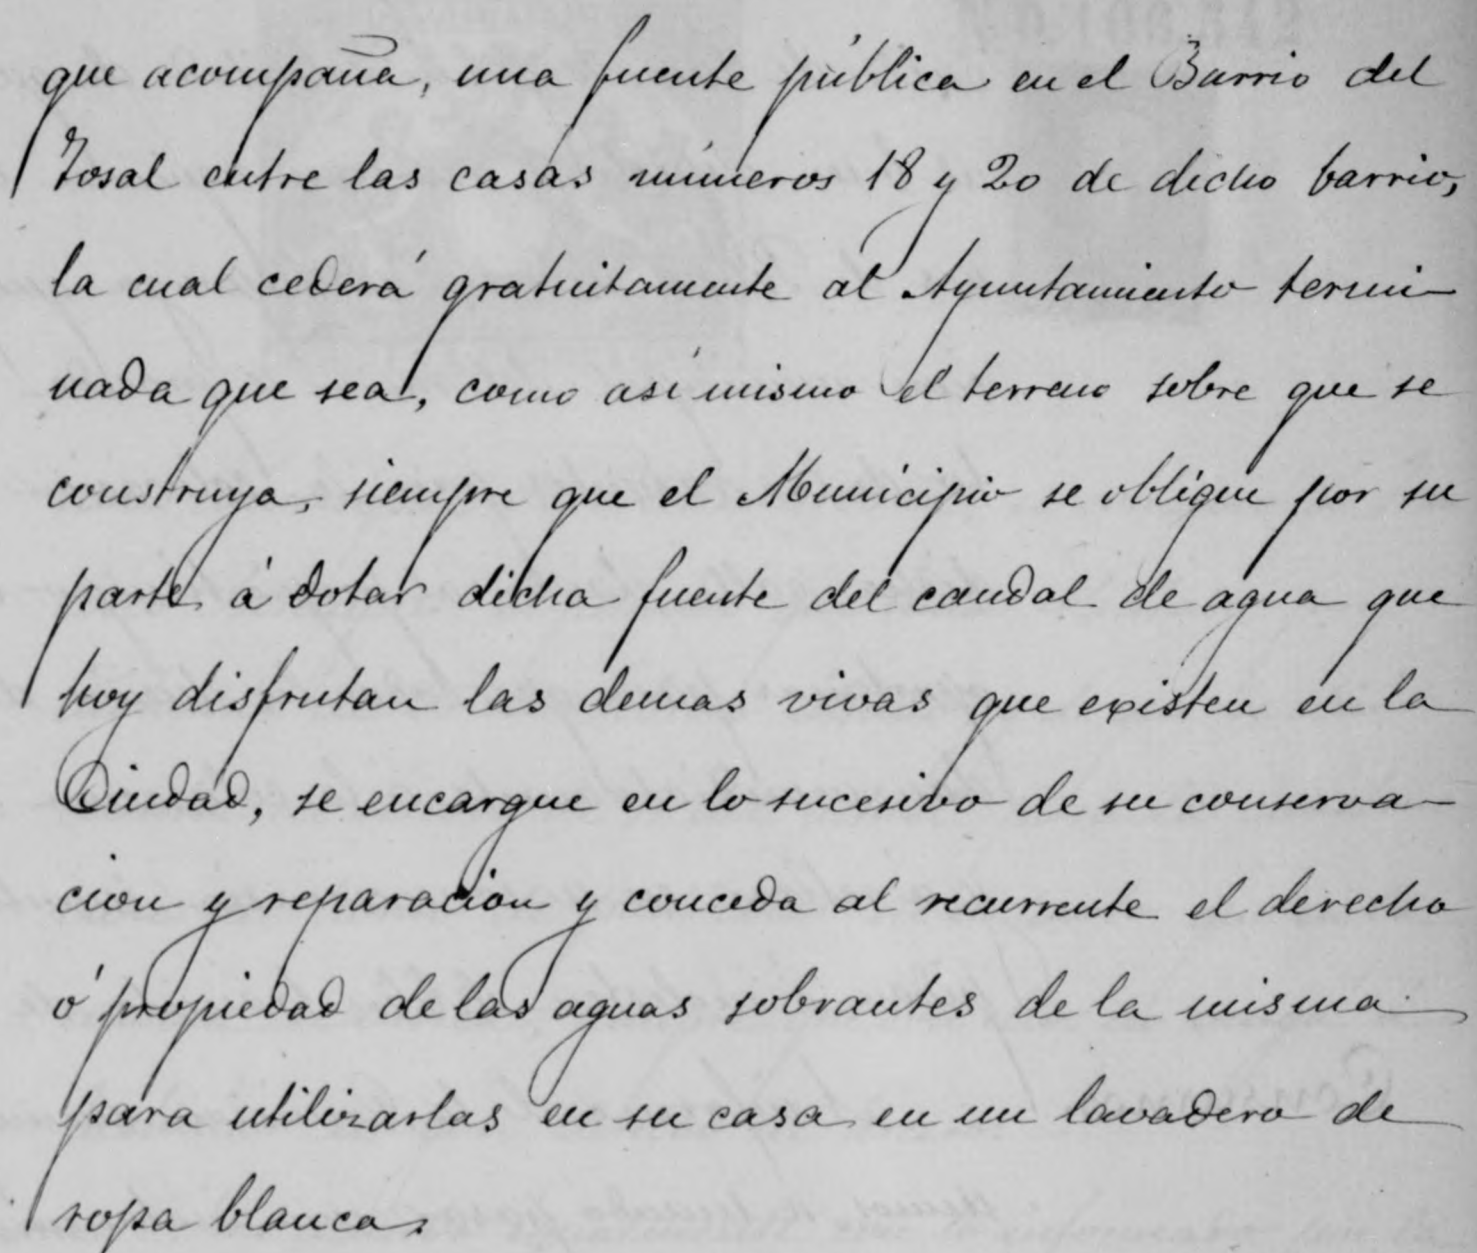 que acompaña, una fuente pública en el Barrio del
Tosal entre las casas números 18 y 20 de dicho barrio,
la cual cederá gratuitamente al Ayuntamiento termi-
nada que sea, como asi mismo el terreno sobre que se
construya, siempre que el Municipio se obligue por su
parte á dotar dicha fuente del caudal de agua que
hoy disfrutan las demas vivas que existen en la
Ciudad, se encargue en lo sucesivo de su conserva-
cion y reparacion y conceda al recurrente el derecho
ó propiedad de las aguas sobrantes de la misma
para utilizarlas en su casa en un lavadero de
ropa blanca.